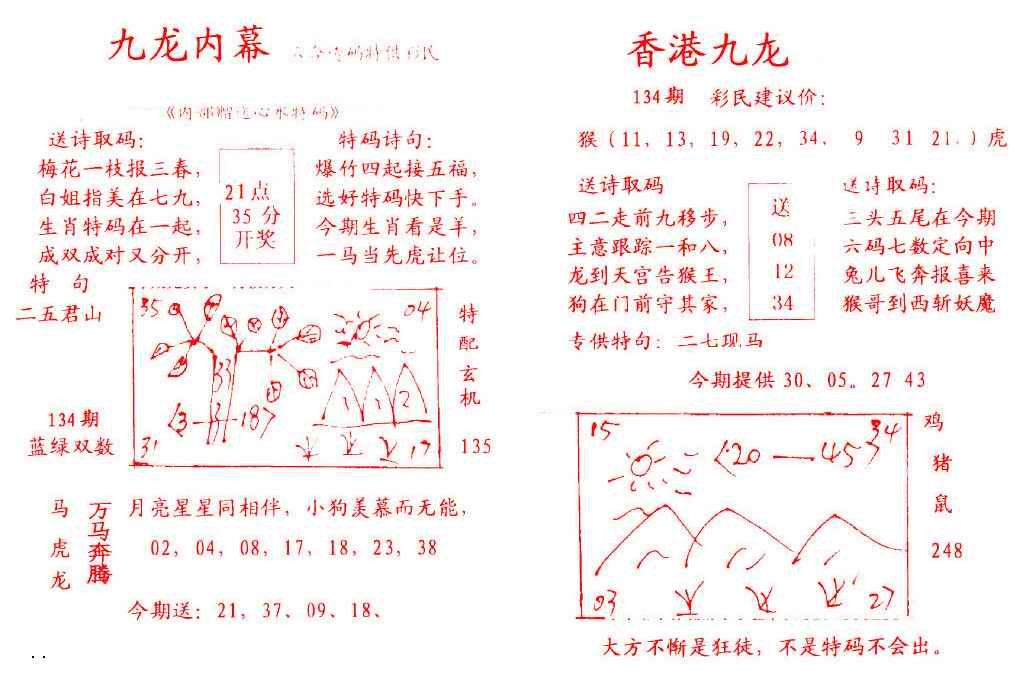 九龙内幕
送诗取码：
梅花一枝报三春，
白姐指美在七九，
生肖特码在一起，
成双成对又分开，
21点
35分
开奖
特码诗句：
爆竹四起接五福，
选好特码快下手。
今期生肖看是羊，
一马当先虎让位。
特 句
二五君山
134期
蓝绿双数
35
04
33
1 1 2
31
17
特
配
玄
机
135
马
虎
龙
万马奔腾
月亮星星同相伴，小狗羡慕而无能，
02，04，08，17，18，23，38
今期送：21，37、09、18、
香港九龙
134期 彩民建议价：
猴（11，13，19，22，34、 9 31 21.）虎
送诗取码
四二走前九移步，
主意跟踪一和八，
龙到天宫告猴王，
狗在门前守其家，
送
08
12
34
送诗取码：
三头五尾在今期
六码七数定向中
兔儿飞奔报喜来
猴哥到西斩妖魔
专供特句：二七现马
今期提供 30、05。27 43
15
34
20 — 45
03
27
鸡
猪
鼠
248
大方不惭是狂徒，不是特码不会出。